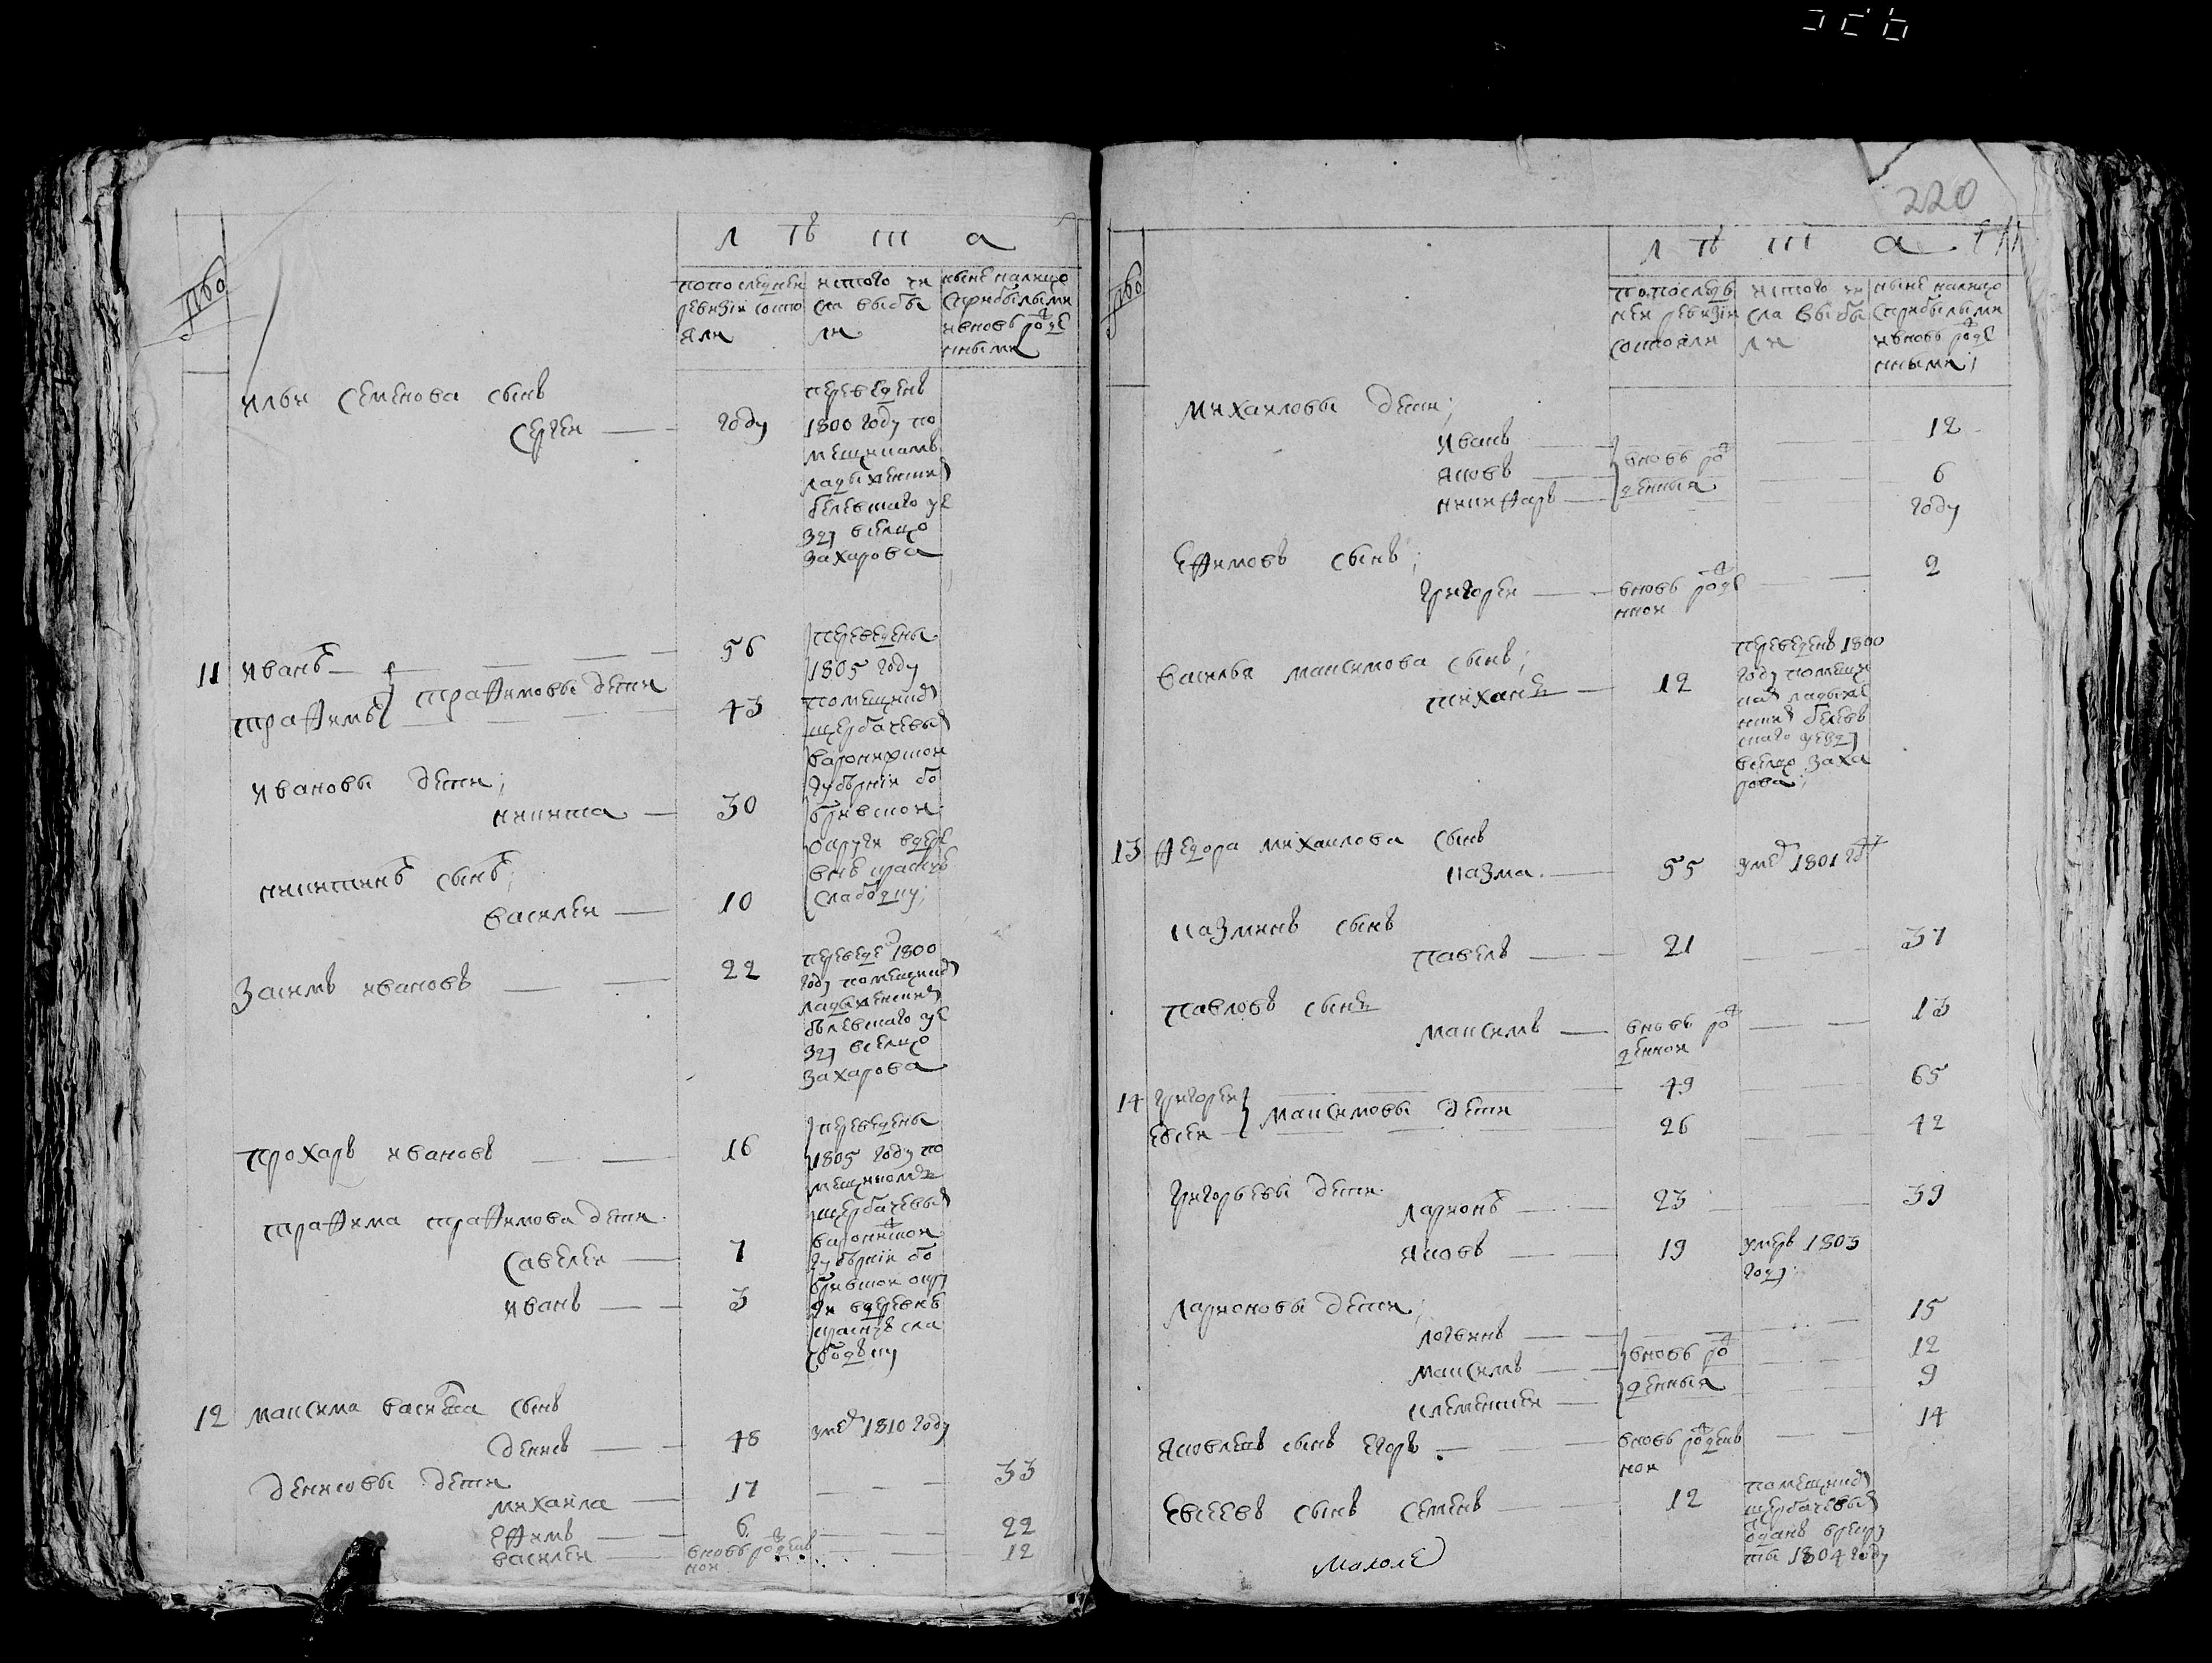 220
лѣта
попоследнеи ревизiи состояли
истого числа выбыли
ныне налицо сприбылыми ивновь рожденными
ильи семенова сынъ
сергеи — году
переведенъ
1800 году по
мещикамъ
белевскаго уе
зду вселцо
захарова
11 иванъ — 56
трафимъ } трафимовы дети 43
переведены
1805 году
помещико
щербачевы
варонижскои
губернiи бо
бривскои
округи вдере
внъ краснъ
слабодку;
ивановы дети;
никита — 30
никитинъ сынъ;
василеи — 10
засимъ ивановъ — 22
переведе 1800
году помещико
белевскаго уе
зду вселцо
захарова
прохаръ ивановъ — 16
переведены
1805 году по
мещикомъ
щербачевы
варонижскои
губернiи бо
бривскои окру
ги вдеревнъ
краснъ сла
бодъку
трафима трафимова дети
савелеи — 7
иванъ — 3
12 максима васильева сынъ
денись — 48 уме 1810 году
денисовы дети
михаила — 17 — 33
ефимъ — 6 — 22
василеи — вновь рожденъ — 12
нои
лѣта
попоследъ
неи ревизiи
состояли
истого чи
сла выбы
ли
ныне налицо
сприбылыми
ивновь рожде
нными;
михаиловы дети;
иванъ — 12
яковъ — вновь ро — 6
никифаръ — жденныя году
ефимовъ сынъ;
григореи — вновь рожде — 2
ннои
василья максимова сынъ;
тиханъ — 12
переведенъ 1800
году помещи
белевъ
скаго уезду
вселцо заха
рова;
13 федора михаилова сынъ
казма — 55 уме 1801 году
казминъ сынъ
павелъ — 21 — 37
павловъ сынъ
максимъ — вновь ро — 13
жденнои
14 григореи — 49 — 65
евсеи } максимовы дети 26 — 42
григорьевы дети
ларионъ — 23 — 39
яковъ — 19 умеръ 1803
году
ларионовы дети;
логвинъ — 15
максимъ — вновь ро — 12
клементеи — жденныя 9
яковлевъ сынъ егоръ — вновь рожденъ — 14
нои
евсеевъ сынъ семенъ — 12
помещико
щербачевы
воданъ врекру
ты 1804 году